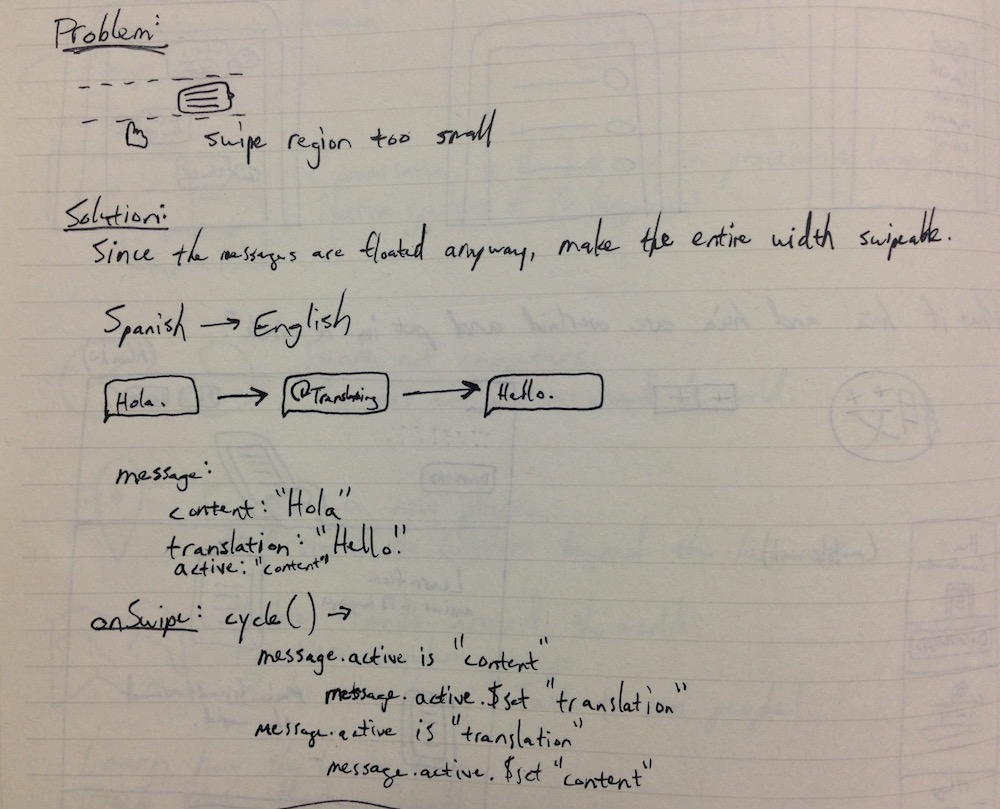 Problem:
swipe region too small
Solution:
Since the messages are floated anyway, make the entire width swipeable.
Spanish → English
Hola. → Translating → Hello.
message:
content: "Hola"
translation: "Hello!"
active: "content"
onSwipe: cycle() →
message.active is "content"
message.active.$set "translation"
message.active is "translation"
message.active.$set "content"